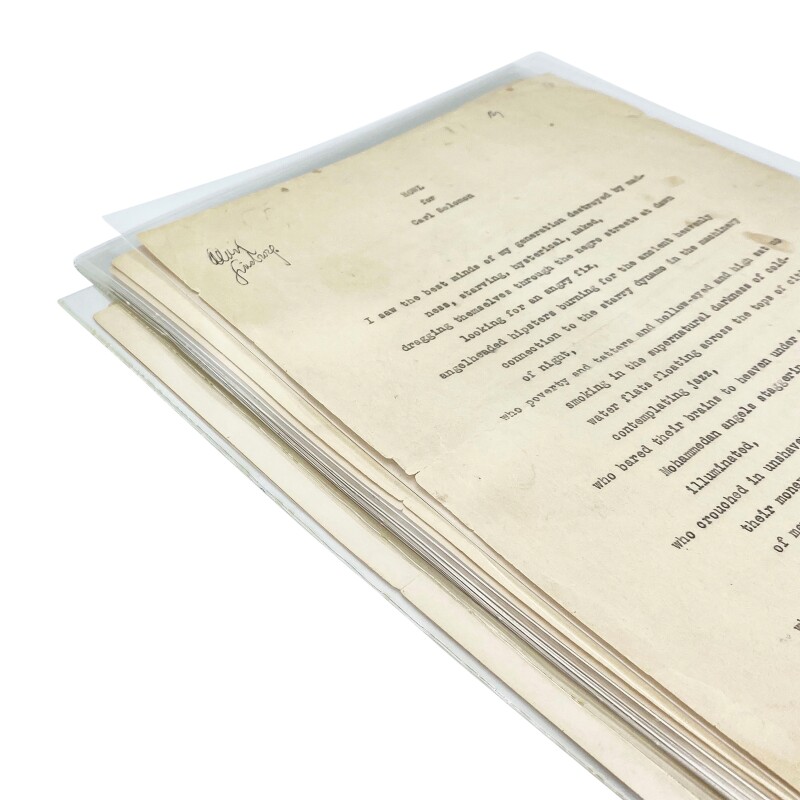 HOWL
for
Carl Solomon
Allen
Ginsberg
I saw the best minds of my generation destroyed by mad-
ness, starving, hysterical, naked,
dragging themselves through the negro streets at dawn
looking for an angry fix,
angelheaded hipsters burning for the ancient heavenly
connection to the starry dynamo in the machinery
of night,
who poverty and tatters and hollow-eyed and high sat up
smoking in the supernatural darkness of cold-
water flats floating across the tops of
contemplating jazz,
who bared their brains to heaven under
Mohammedan angels staggering
illuminated,
who crouched in
their
of